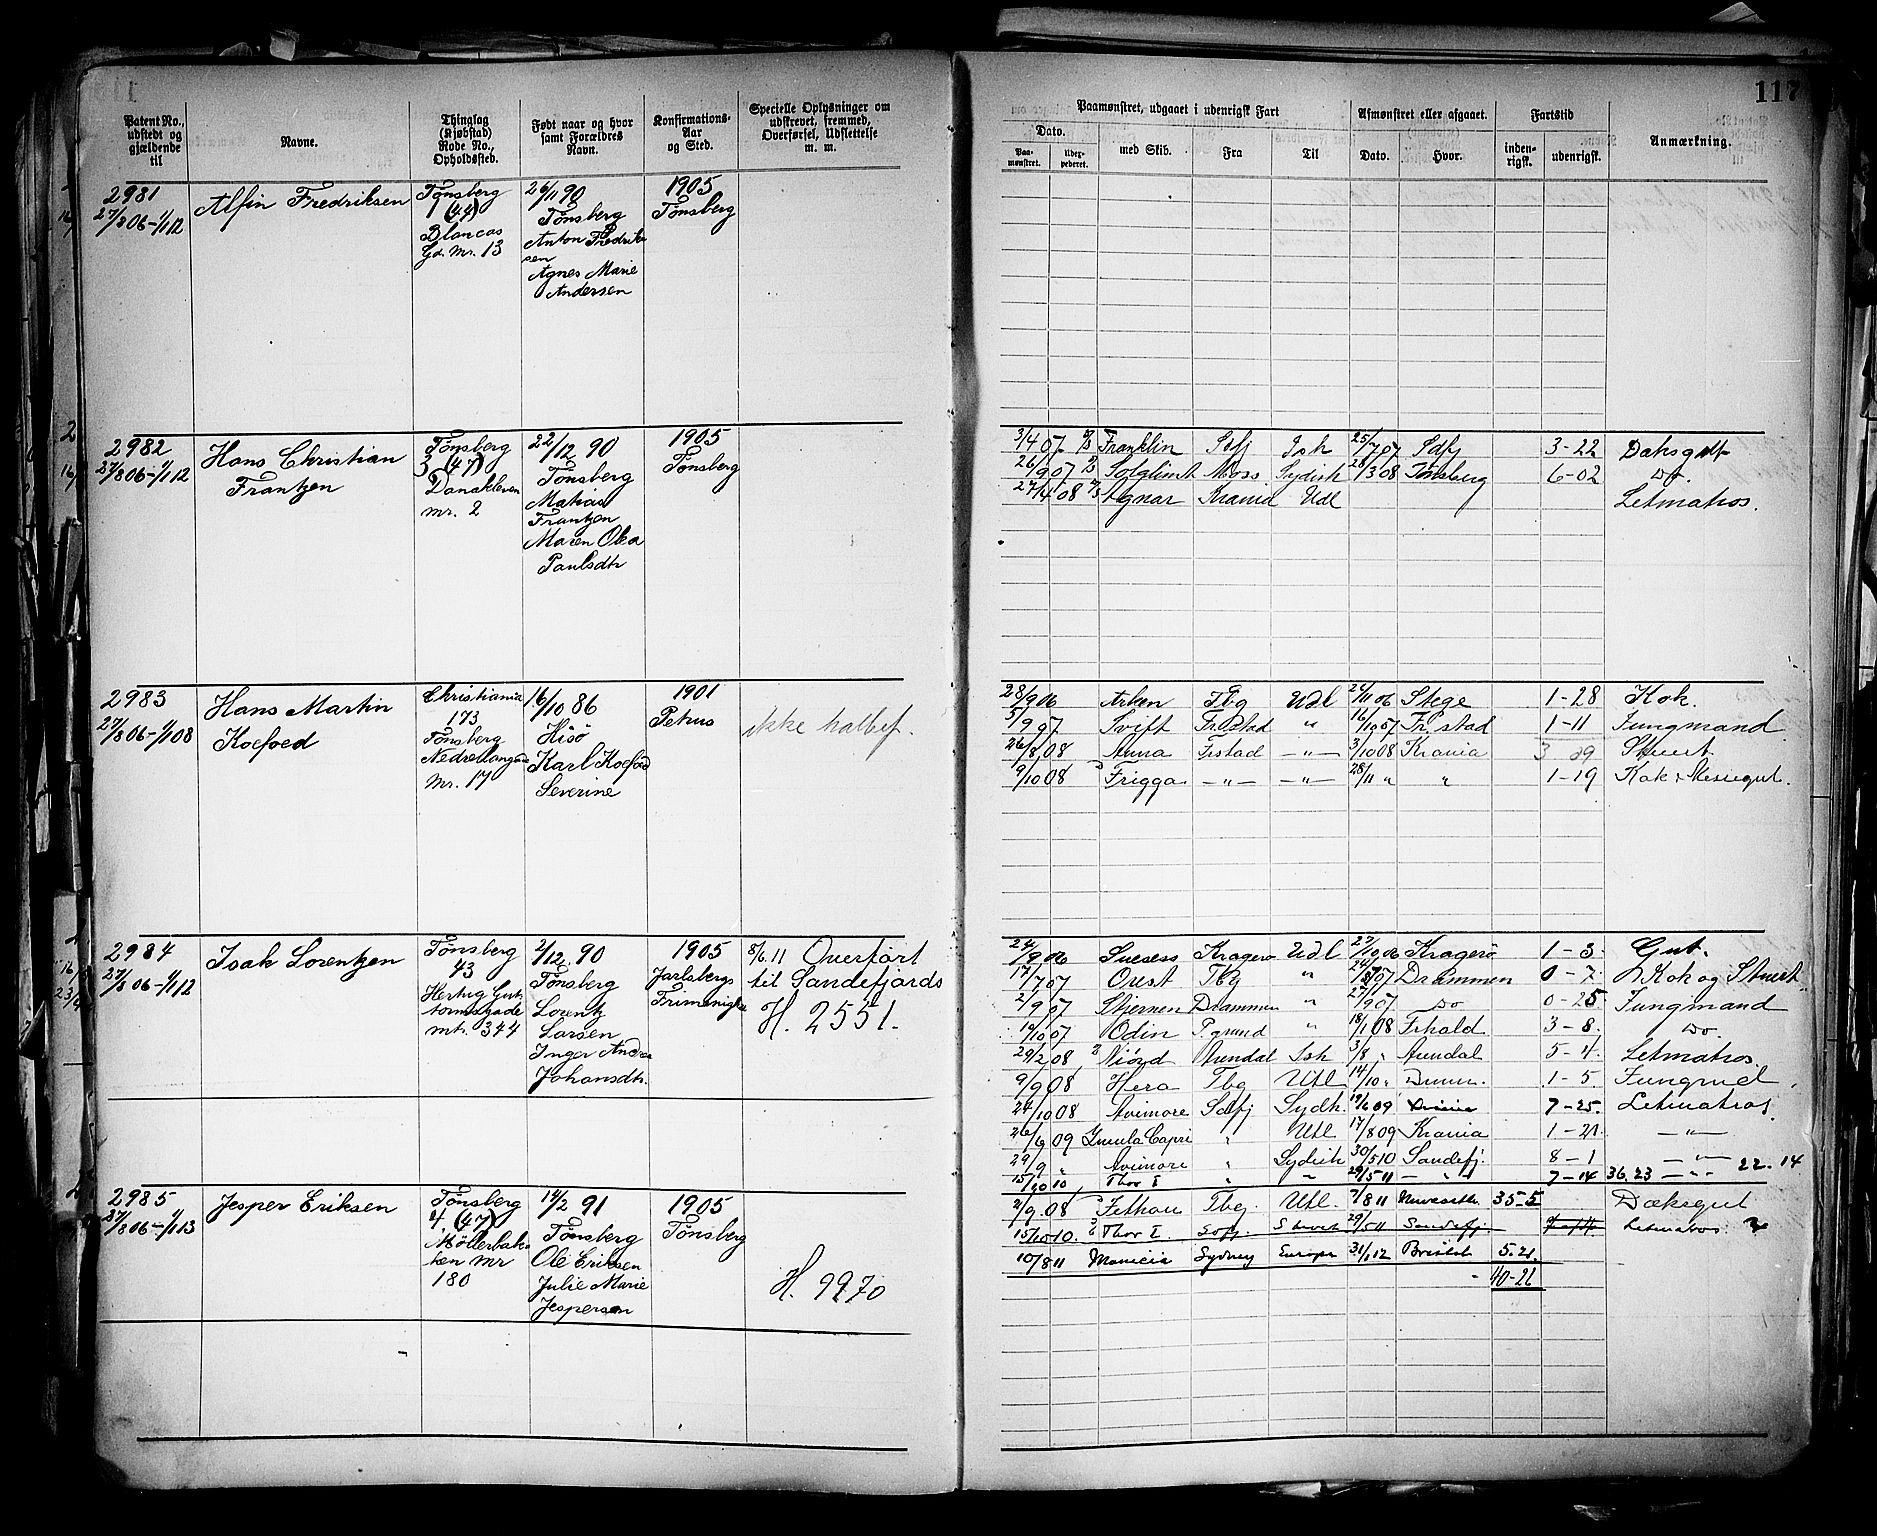 117
Patent No., udstedt og gjældende til
Navne.
Thinglag (Kjøbstad) Rode No., Opholdssteb.
Født naar og hvor samt Forældres Navn.
Konfirmations-Aar og Sted.
Specielle Oplysninger om udskrevet, fremmed, Overførsel, Udslettelse m. m.
Paamønstret, udgaaet i udenrigsk Fart
Dato.
Paa-mønstret.
med Skib.
Fra
Til
Afmønstret eller afgaaet.
Dato.
Hvor.
Fartstid
inden-rigsk.
udenrigsk.
Anmærkning.
2981
27/8 06 - 1/1 12
Alfin Fredriksen
Tønsberg
1 (44)
Gd. Nr. 13
26/11 90
Tønsberg
Anton Fredrik
sen
Agnes Marie
Andersen
1905
Tønsberg
2982
27/8 06 - 1/1 12
Hans Christian
Frantzen
Tønsberg
3 (47)
Danakleven
nr. 2
22/12 90
Tønsberg
Frantzen
Maren Olea
Paulsdtr
1905
Tønsberg
3/4 07 Franklin Sdfj Ish 25/7 07 Sdfj 3-22 Dæksgut
26/9 07 Solglimt Moss Sydish /3 08 Tønsberg 6-02 do.
27/4 08 Agnar Krania Udl Letmatros.
2983
27/8 06 - 1/1 08
Hans Martin
Koefoed
Christiania
173
Tønsberg
Nr. 17
16/10 86
Hisö
Karl Koefod
Severine
1901
Petrus
ikke halbef.
28/9 06 Arken Tbg Udl /11 06 Stege 1-28 Kok.
5/9 07 Svift Fr.stad " 16/10 07 Fr.stad 1-11 Jungmand
26/8 08 Anna Frstad -"- 3/10 08 Krania 3 09 Stuert
9/10 08 Frigga -"- -"- 28/11 " " 1-19 Kok & Messegut.
2984
27/8 06 - 1/1 12
Isak Lorentzen
Tønsberg
43
Hertug Gut
tormsgade
mtr. 344
2/12 90
Tønsberg
Lorentz
Larsen
Inger Andrea
Johansdtr.
1905
Jarlsbergs
Frimenighe
8/6.11 Overført
til Sandefjords
H. 2551.
24/9 06 Sucsess Kragerø Udl 27/10 06 Kragerö 1-3 Gut.
17/7 07 Orest Tbg " 07 Drammen 0-7 Kok og Stuert
2/9 07 Stjernen Drammen " 27/9 07 do 0-25 Jungmand
10/10 07 Odin P.grund " 18/1 08 Frhald 3-8 do.
29/2 08 Niörd Arendal Ish 3/8 " Arendal 5-4 Letmatros
9/9 08 Hera Tbg Utl 14/10 " 1-5 Jungmd
24/10 08 Avimore Sdfj Sydh. 19/6 09 7-25 Letmatros
26/6 09 Capri " Utl 17/8 09 Krania 1-21 -"-
29/9 " Avimore " Sydish 30/5 10 Sandefj. 8-1 -"-
15/10 10 Thor I " " 29/5 11 -"- 7-14 36.23 -"- 22.14
2985
27/8 06 - 1/1 13
Jesper Eriksen
Tønsberg
4. (47)
Møllerbak
ken nr
180
14/2 91
Tønsberg
Ole Eriksen
Julie Marie
Jespersen
1905
Tønsberg
H. 9970
2/9 08 Tbg. Utl. 7/8 11 35-5 Dæksgut
15/10 10. Thor I. 29/5 11 Sandefj. Letmatros
10/8 11 Sydney Europa 31/1 12 Bristol 5.21
40-26